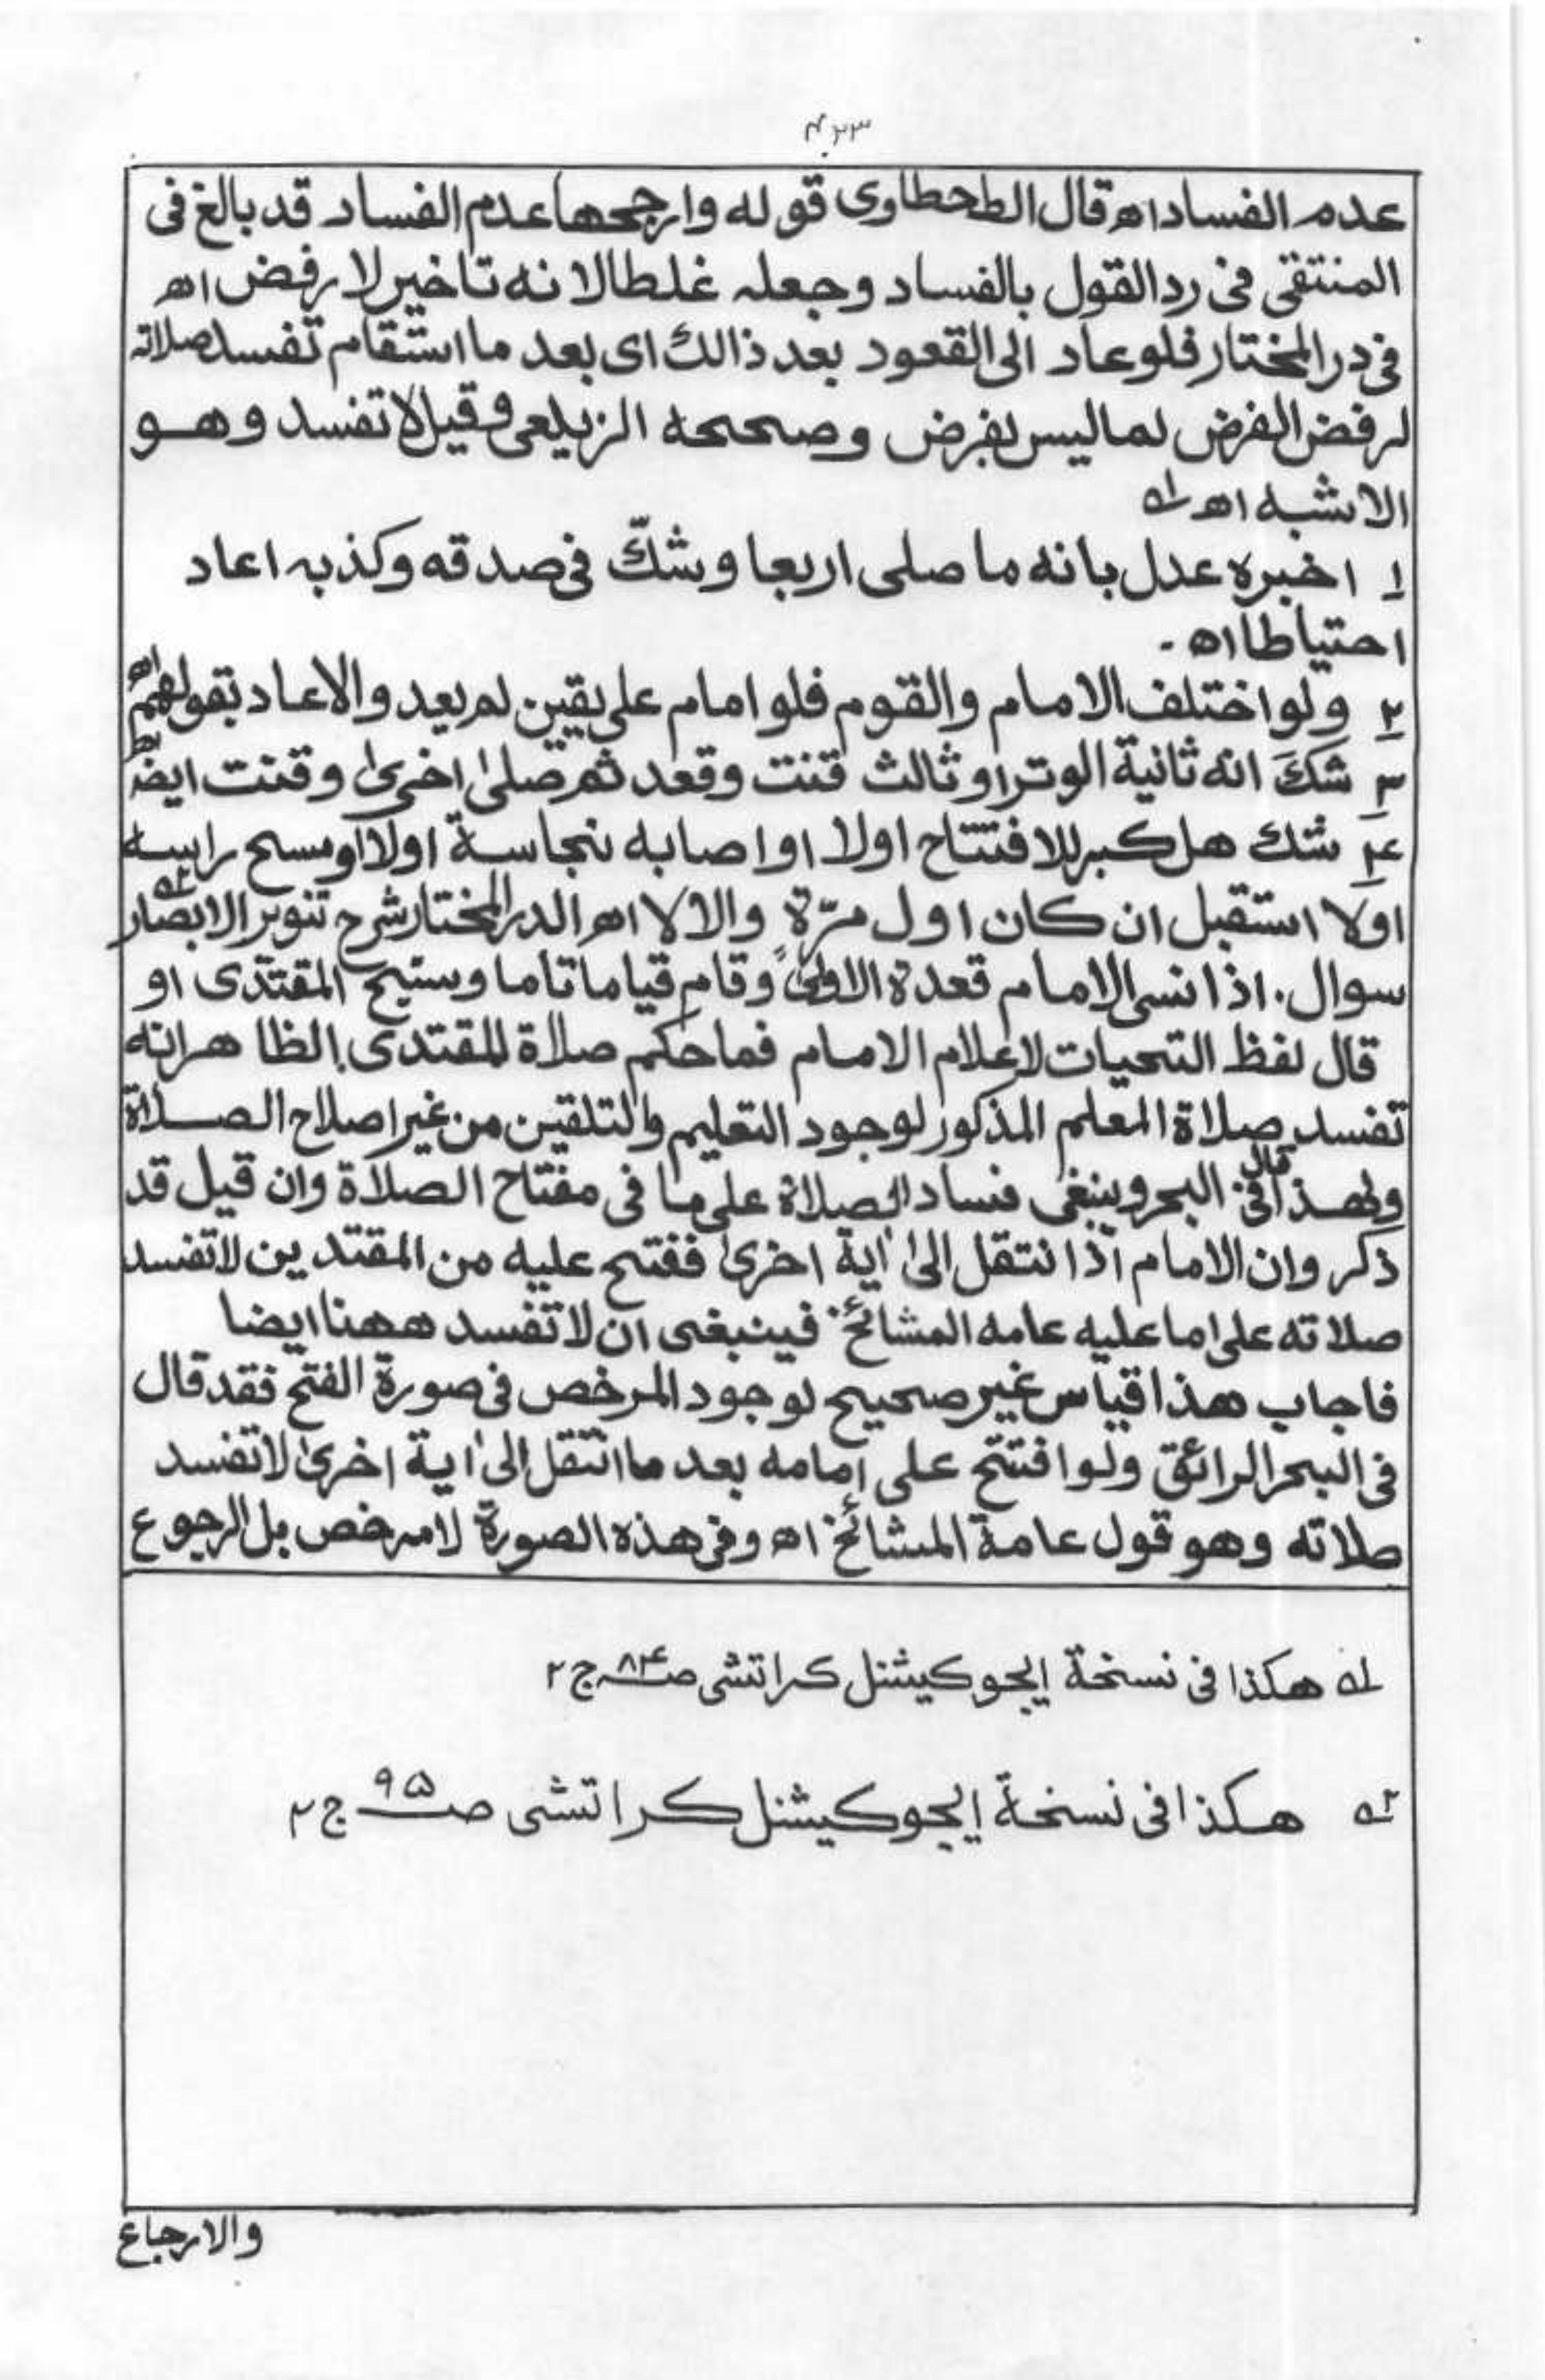 ۴۳۳
عدم الفساد اھ قال الطحطاوی قوله وارجحها عدم الفساد قد بالغ فی
المنتقی فی رد القول بالفساد وجعله غلطا لا نه تاخیر لا رفض اھ
فی در المختار فلو عاد الی القعود بعد ذالك ای بعد ما استقام تفسد صلاته
لرفض الفرض لما لیس بفرض وصححه الزیلعی وقیل لا تفسد وهو
الاشبه اھ ۱ه
۱ اخبره عدل بانه ما صلی اربعا وشكّ فی صدقه وکذبه اعاد
احتیاطا اھ -
۲ ولو اختلف الامام والقوم فلو امام علی یقین لم یعد والا عاد بقولهم اھ
۳ شكَ انه ثانیة الوتر او ثالث قنت وقعد ثم صلیٰ اخریٰ وقنت ایضا اھ
۴ شك هل کبر للافتتاح اولا او اصابه نجاسة اولا او مسح راسه
اولا استقبل ان کان اول مرّة والا لا اھ الدر المختار شرح تنویر الابصار ۲ه
سوال . اذا نسی الامام قعدة الاولیٰ وقام قیاما تاما وسبح المقتدی او
قال لفظ التحیات لاعلام الامام فما حکم صلاة للمقتدی . الظاهر انه
تفسد صلاة المعلم المذکور لوجود التعلیم والتلقین من غیر اصلاح الصلاة
ولهذا قال فی البحر وینبغی فساد الصلاة علی ما فی مفتاح الصلاة وان قیل قد
ذکر وان الامام اذا نتقل الیٰ اٰیة اخریٰ ففتح علیه من المقتدین لا تفسد
صلاته علی ما علیه عامه المشائخ فینبغی ان لا تفسد ههنا ایضا
فاجاب هذا قیاس غیر صحیح لوجود المرخص فی صورة الفتح فقد قال
فی البحر الرائق ولو افتتح علی امامه بعد ما انتقل الیٰ اٰیة اخریٰ لا تفسد
صلاته وهو قول عامة المشائخ اھ وفی هذه الصورة لا مرخص بل الرجوع
۱ه هکذا فی نسخة ایجوکیشنل کراتشی صـ۸۴ ج ۲
۲ه هکذا فی نسخة ایجوکیشنل کراتشی صـ۹۵ ج ۲
والارجاع